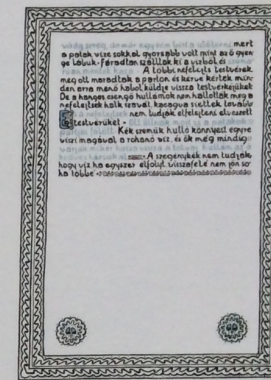 mert
a patak vize sokkal gyorsabb volt mint az ő gyen
ge lábuk - fáradtan szálltak ki a vízből és
A többi nefelejts testvérek
meg ott maradtak a parton és kérve kérték min
den arra menő habot küldje vissza testvérkéjüket
De a hangos csengő hullámok nem hallották meg a
nefelejtsek halk szavát kacagva siettek tovább
nem tudják elfelejteni elveszett
testvérüket -
Kék szemük hulló könnyeit egyre
viszi magával a rohanó víz. és ők még mindig
A szegénykék nem tudják
hogy víz ha egyszer elfolyt visszafelé nem jön so
ha többé